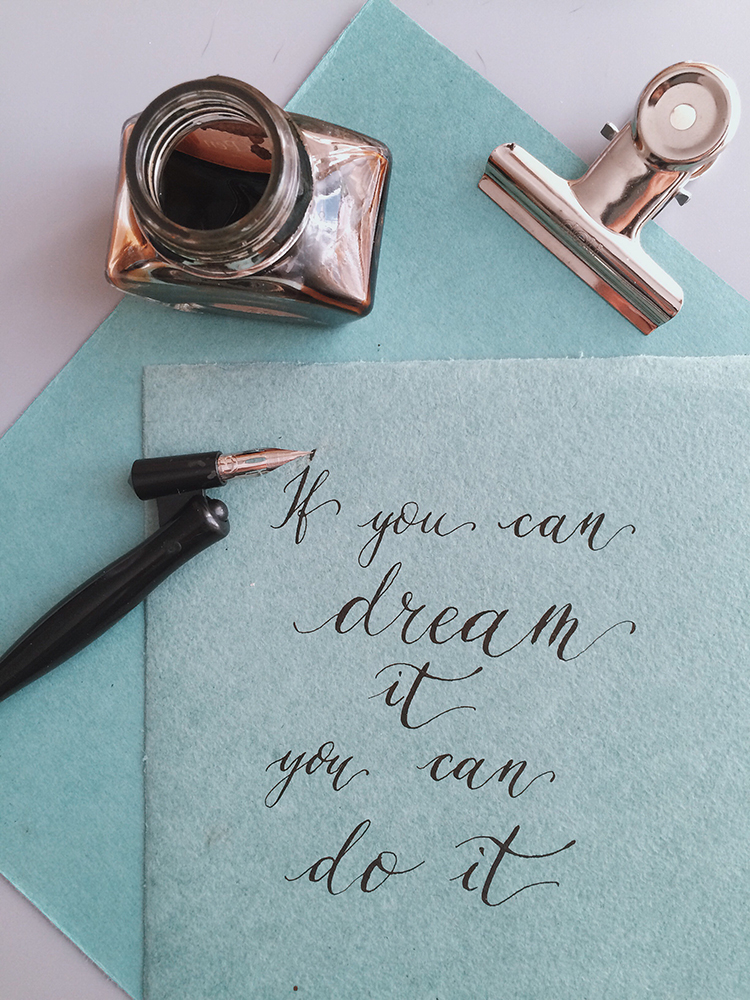 If you can
dream
it
you can
do it